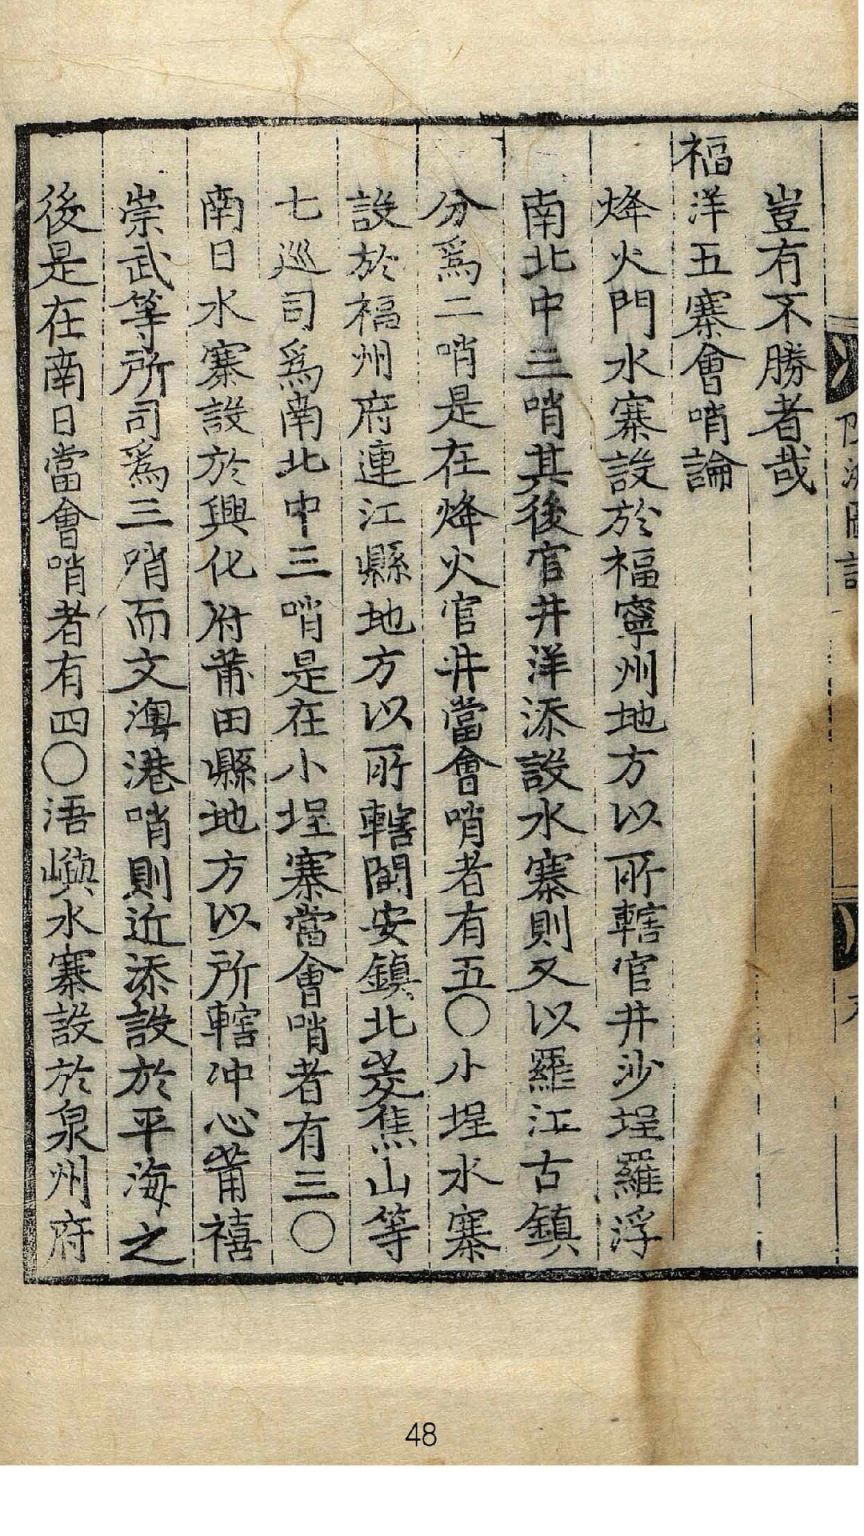 豈有不勝者㦲
福洋五寨會哨論
烽火門水寨設於福寧州地方以所轄官井沙埕羅浮
南北中三哨其後官井洋添設水寨則又以羅江古鎮
分爲二哨是在烽火官井當會哨者有五〇小埕水寨
設於福州府連江縣地方以所轄閩安鎮北茭焦山等
七巡司爲南北中三哨是在小埕寨當會哨者有三〇
南日水寨設於興化府莆田縣地方以所轄冲心莆禧
崇武等所司爲三哨而文港哨則近添設於平海之
後是在南日當會哨者有四〇浯嶼水寨設於泉州府
48